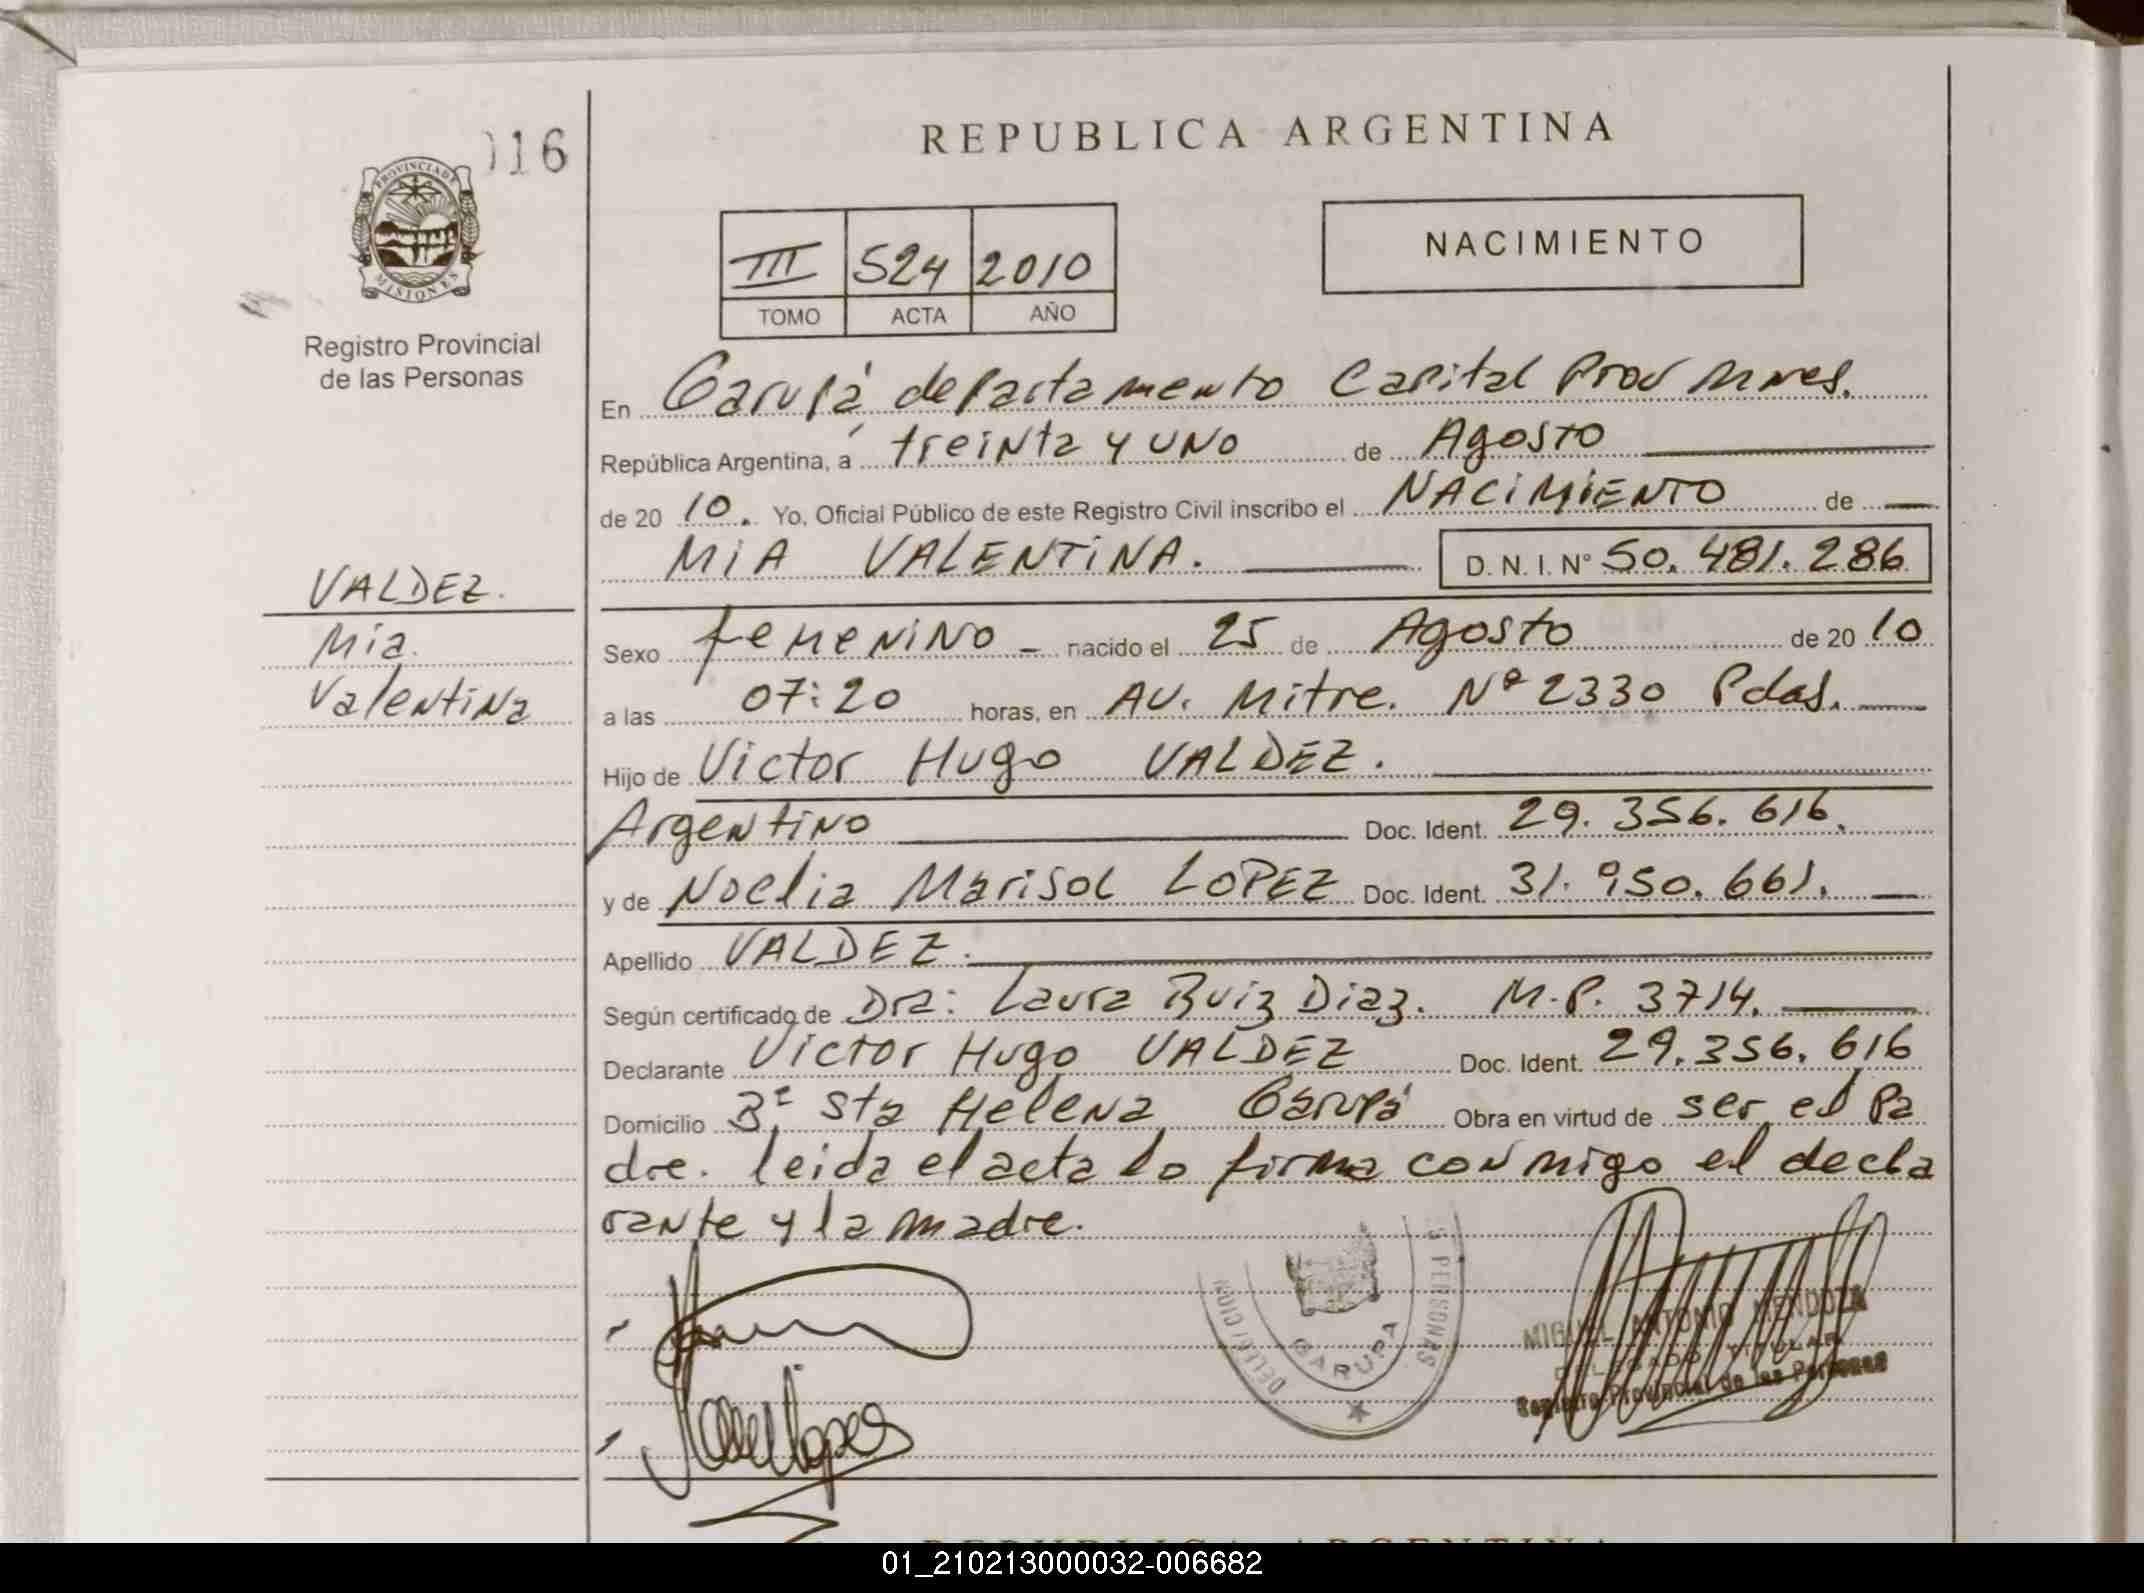 REPUBLICA ARGENTINA
116
PROVINCIA DE
MISIONES
Registro Provincial
de las Personas
III 524 2010
TOMO ACTA AÑO
NACIMIENTO
En Garupá departamento Capital Prov Mnes.
República Argentina, a treinta y uno de Agosto
de 20 10. Yo, Oficial Público de este Registro Civil inscribo el NACIMIENTO de
MIA VALENTINA. D. N. I. Nº 50.481.286
VALDEZ.
Mia
Valentina
Sexo femenino - nacido el 25 de Agosto de 20 10
a las 07:20 horas, en AV. Mitre. Nº 2330 Pdas.
Hijo de Victor Hugo VALDEZ.
Argentino Doc. Ident. 29.356.616.
y de Noelia Marisol LOPEZ Doc. Ident. 31.950.661.
Apellido VALDEZ.
Según certificado de Dra: Laura Ruiz Diaz. M.P. 3714.
Declarante Victor Hugo VALDEZ Doc. Ident. 29.356.616
Domicilio Bº Sta Helena Garupá Obra en virtud de ser el Pa
dre. leida el acta lo firma conmigo el decla
rante y la madre.
DELEGACION
S PERSONAS
GARUPA
MIGUEL ANTONIO MENDOZA
DELEGADO TITULAR
Registro Provincial de las Personas
REPUBLICA ARGENTINA
01_210213000032-006682